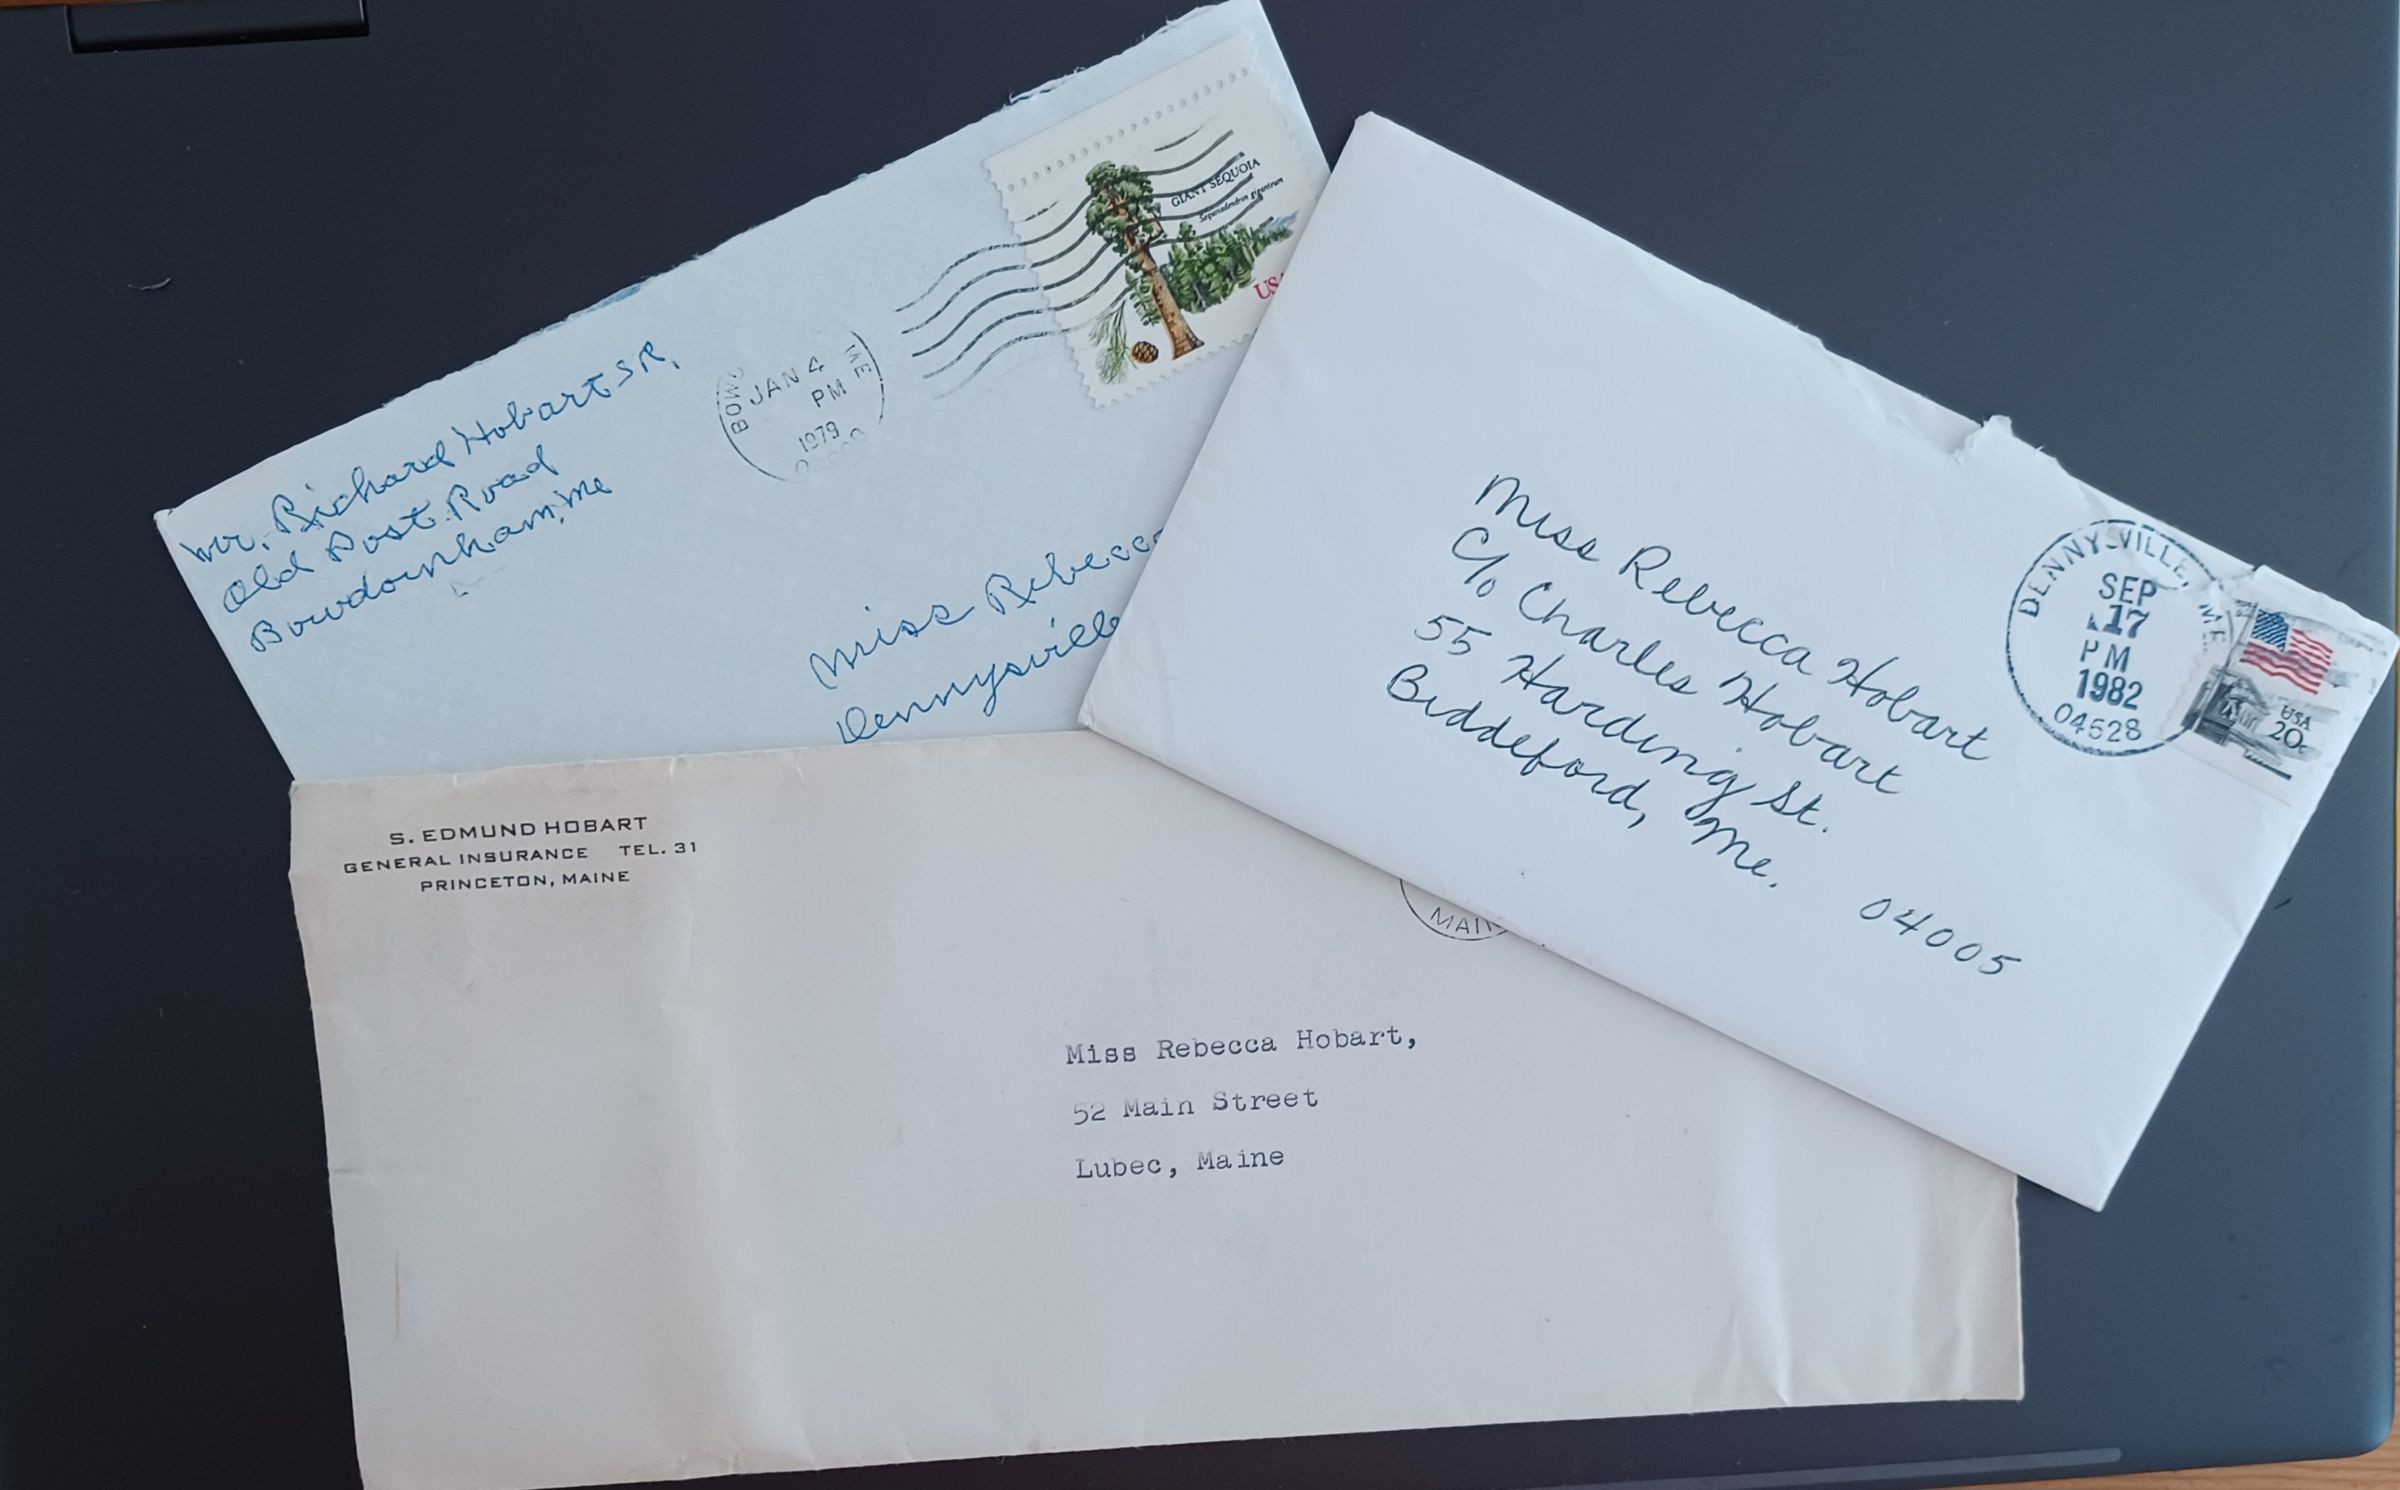 Mr. Richard Hobart SR.
Old Post Road
Bowdoinham, Me
JAN 4
ME
PM
1979
GIANT SEQUOIA
Sequoiadendron giganteum
Miss Rebecca
Dennysville
Miss Rebecca Hobart
C/o Charles Hobart
55 Harding St.
Biddeford, Me. 04005
DENNYSVILLE, ME
SEP
17
PM
1982
04628
USA
20c
S. EDMUND HOBART
GENERAL INSURANCE TEL. 31
PRINCETON, MAINE
Miss Rebecca Hobart,
52 Main Street
Lubec, Maine